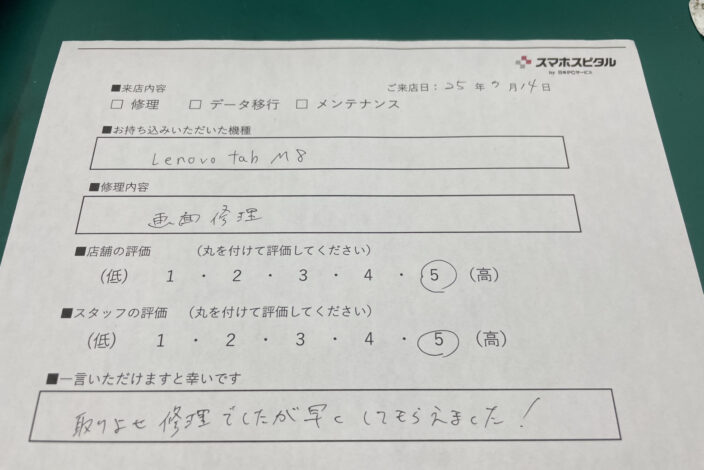 スマホスピタル
by 日本PCサービス
■来店内容 ご来店日：25年9月14日
□ 修理 □ データ移行 □ メンテナンス
■お持ち込みいただいた機種
Lenovo tab M8
■修理内容
画面修理
■店舗の評価 （丸を付けて評価してください）
（低） 1 ・ 2 ・ 3 ・ 4 ・ 5 （高）
■スタッフの評価 （丸を付けて評価してください）
（低） 1 ・ 2 ・ 3 ・ 4 ・ 5 （高）
■一言いただけますと幸いです
取りよせ修理でしたが早くしてもらえました！